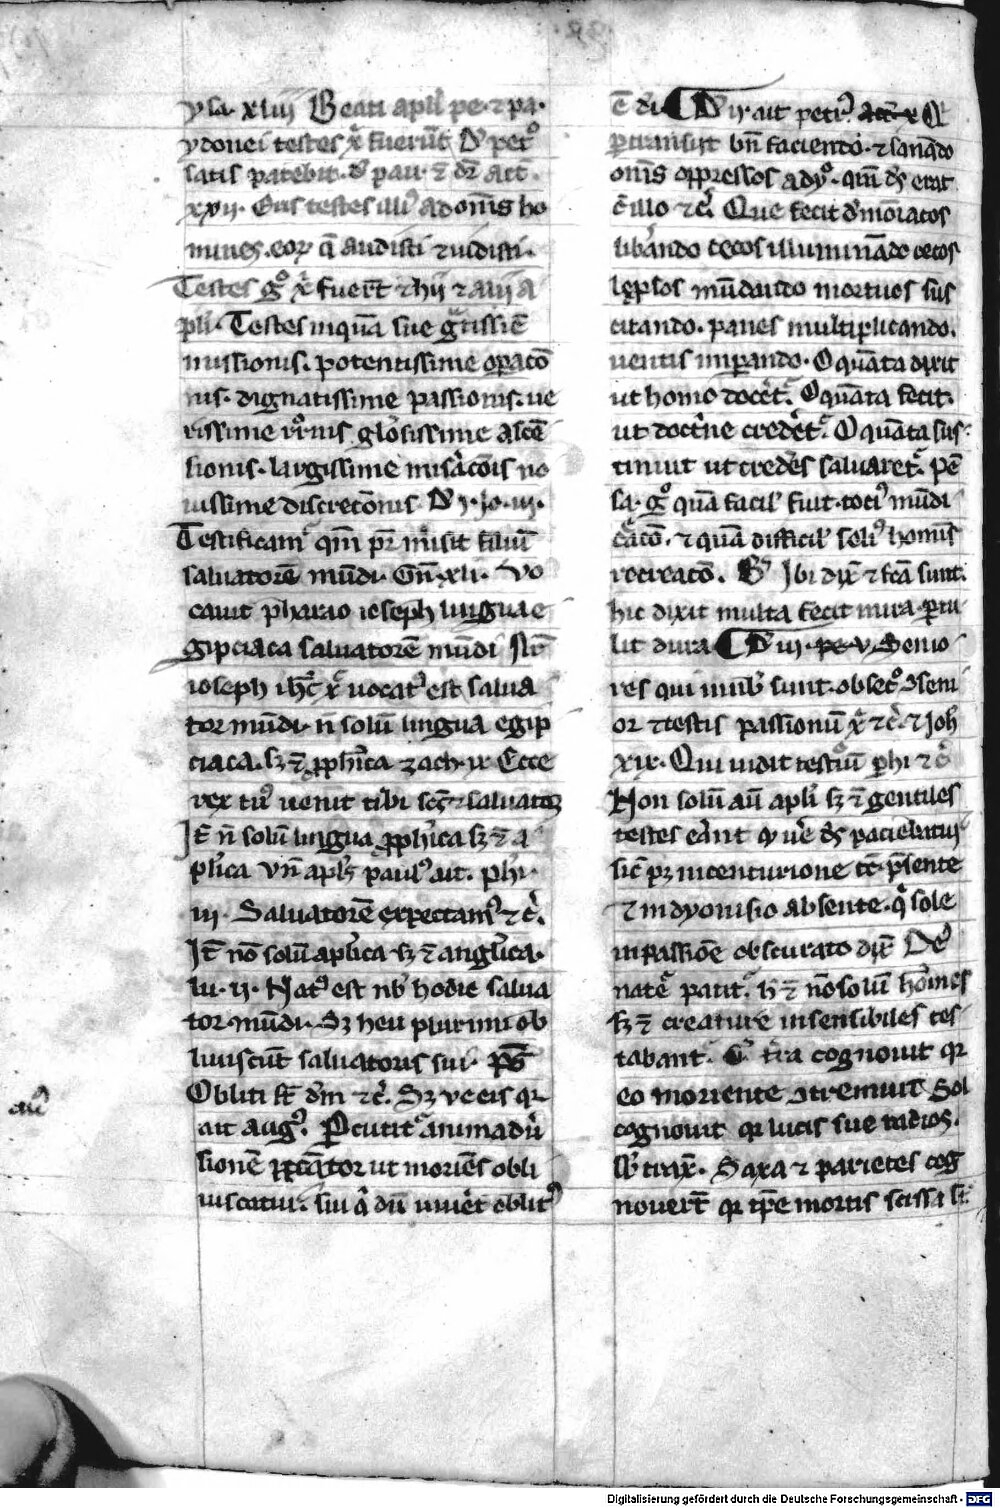 ysa. xliij Beati apli pe. ⁊ pa.
ydonei testes x̄ fuerūt D̄ petº
satis patebit. d̄ pau. ē dr̄ Act.
xxij. Eris testes illiꝰ ad om̄s ho
mines. eoꝝ q̄ audisti ⁊ uidisti.
Testes gº x̄ fuer̄t ⁊ hij ⁊ alij a
pli. Testes inquā sue gᵃtissīe
missionis. potentissime oꝑacō
nis. dignatissime passionis. ue
rissime rr̄nis gl̄osissime ascē
sionis. largissime miẜacōis no
uissime discretōnis. D̄ j. jo. iiij.
Testificamᵣ qm̄ pr̄ misit filiū
saluatorē mūdi. Gen̄. xli. Vo
cauit pharao ioseph lingua e
gipciaca saluatorē mūdi Nr̄
ioseph ihc̄ x̄ uocatꝰ est salua
tor mūdi. n̄ solū lingua egip
ciaca. sꝫ ⁊ ꝓph̄ica zach. ix Ecce
rex tuꝰ uenit tibi scs̄ ⁊ saluator
It̄ n̄ solū lingua ꝓph̄ica sꝫ ⁊ a
plica Vn̄ apls̄ paulꝰ ait. phi.
iij. Saluatorē expectamꝰ ⁊c̄.
It̄ nō solū aplica. sꝫ ⁊ angl̄ica.
lu. ij. Natꝰ est nb̄ hodie salua
tor mūdi. Sꝫ heu plurimi ob
liuiscūt saluatoris sui. p̄s
Obliti st̄ dm̄ ⁊c̄. Sꝫ ue eis qꝛ
ait augꝰ. Pcutitᵣ animadū
sionē pctātor ut moriēs obli
uiscatur sui q̄ dū uiuēt oblitꝰ
au
ē dī. ¶ D̄ ij. ait petrꝰ act. x Q
ꝑtransijt bn̄ faciendo. ⁊ sanādo
om̄s oppressos a dyº. qm̄ ds̄ erat
c̄ illo ⁊c̄. Que fecit d̄moiacos
lib̄ando cecos illuminādo cecos
lep̄sos mūdando mortuos sus
citando. panes multiplicando.
uentis imꝑando. O quāta dixit
ut homo docētᵣ. O quāta fecit.
ut doct̄ne cred̄etᵣ. O quāta sus
tinuit ut cred̄es saluaretᵣ. Pē
sa. gº quā facil' fuit totiꝰ mūdi
c̄acō. ⁊ quā difficil' soliꝰ homīs
recreacō. B' Ibi dix̄ ⁊ fc̄a sunt.
hic dixit multa fecit mira ꝑtu
lit dura ¶ D̄ iij. pe. v. Senio
res qui in uob̄ sunt. obsecº ꝯseni
or ⁊ testis passionū x̄ ⁊c̄. ⁊ Joh̄
xix. Qui uidit testiō ꝑhi ⁊c̄
Non solū aū apli sꝫ ⁊ gentiles
testes erāt qꝫ ue ds̄ paciebatur
sic̄ pꝫ in centurione tc̄ p̄sente
⁊ in dyonisio absente. q̄ sole
in passiōe obscurato dix̄ De
natē patitᵣ. h̄ ⁊ nō solū hom̄es
sꝫ ⁊ creature insensibiles tes
tabant. G' tr̄a cognouit qꝛ
eo moriente ꝯtremuit Sol
cognouit qꝛ lucis sue radios.
sb̄trax̄. Saxa ⁊ parietes cog
nouer̄t qꝛ tp̄e mortis scissa st̄
Digitalisierung gefördert durch die Deutsche Forschungsgemeinschaft - DFG